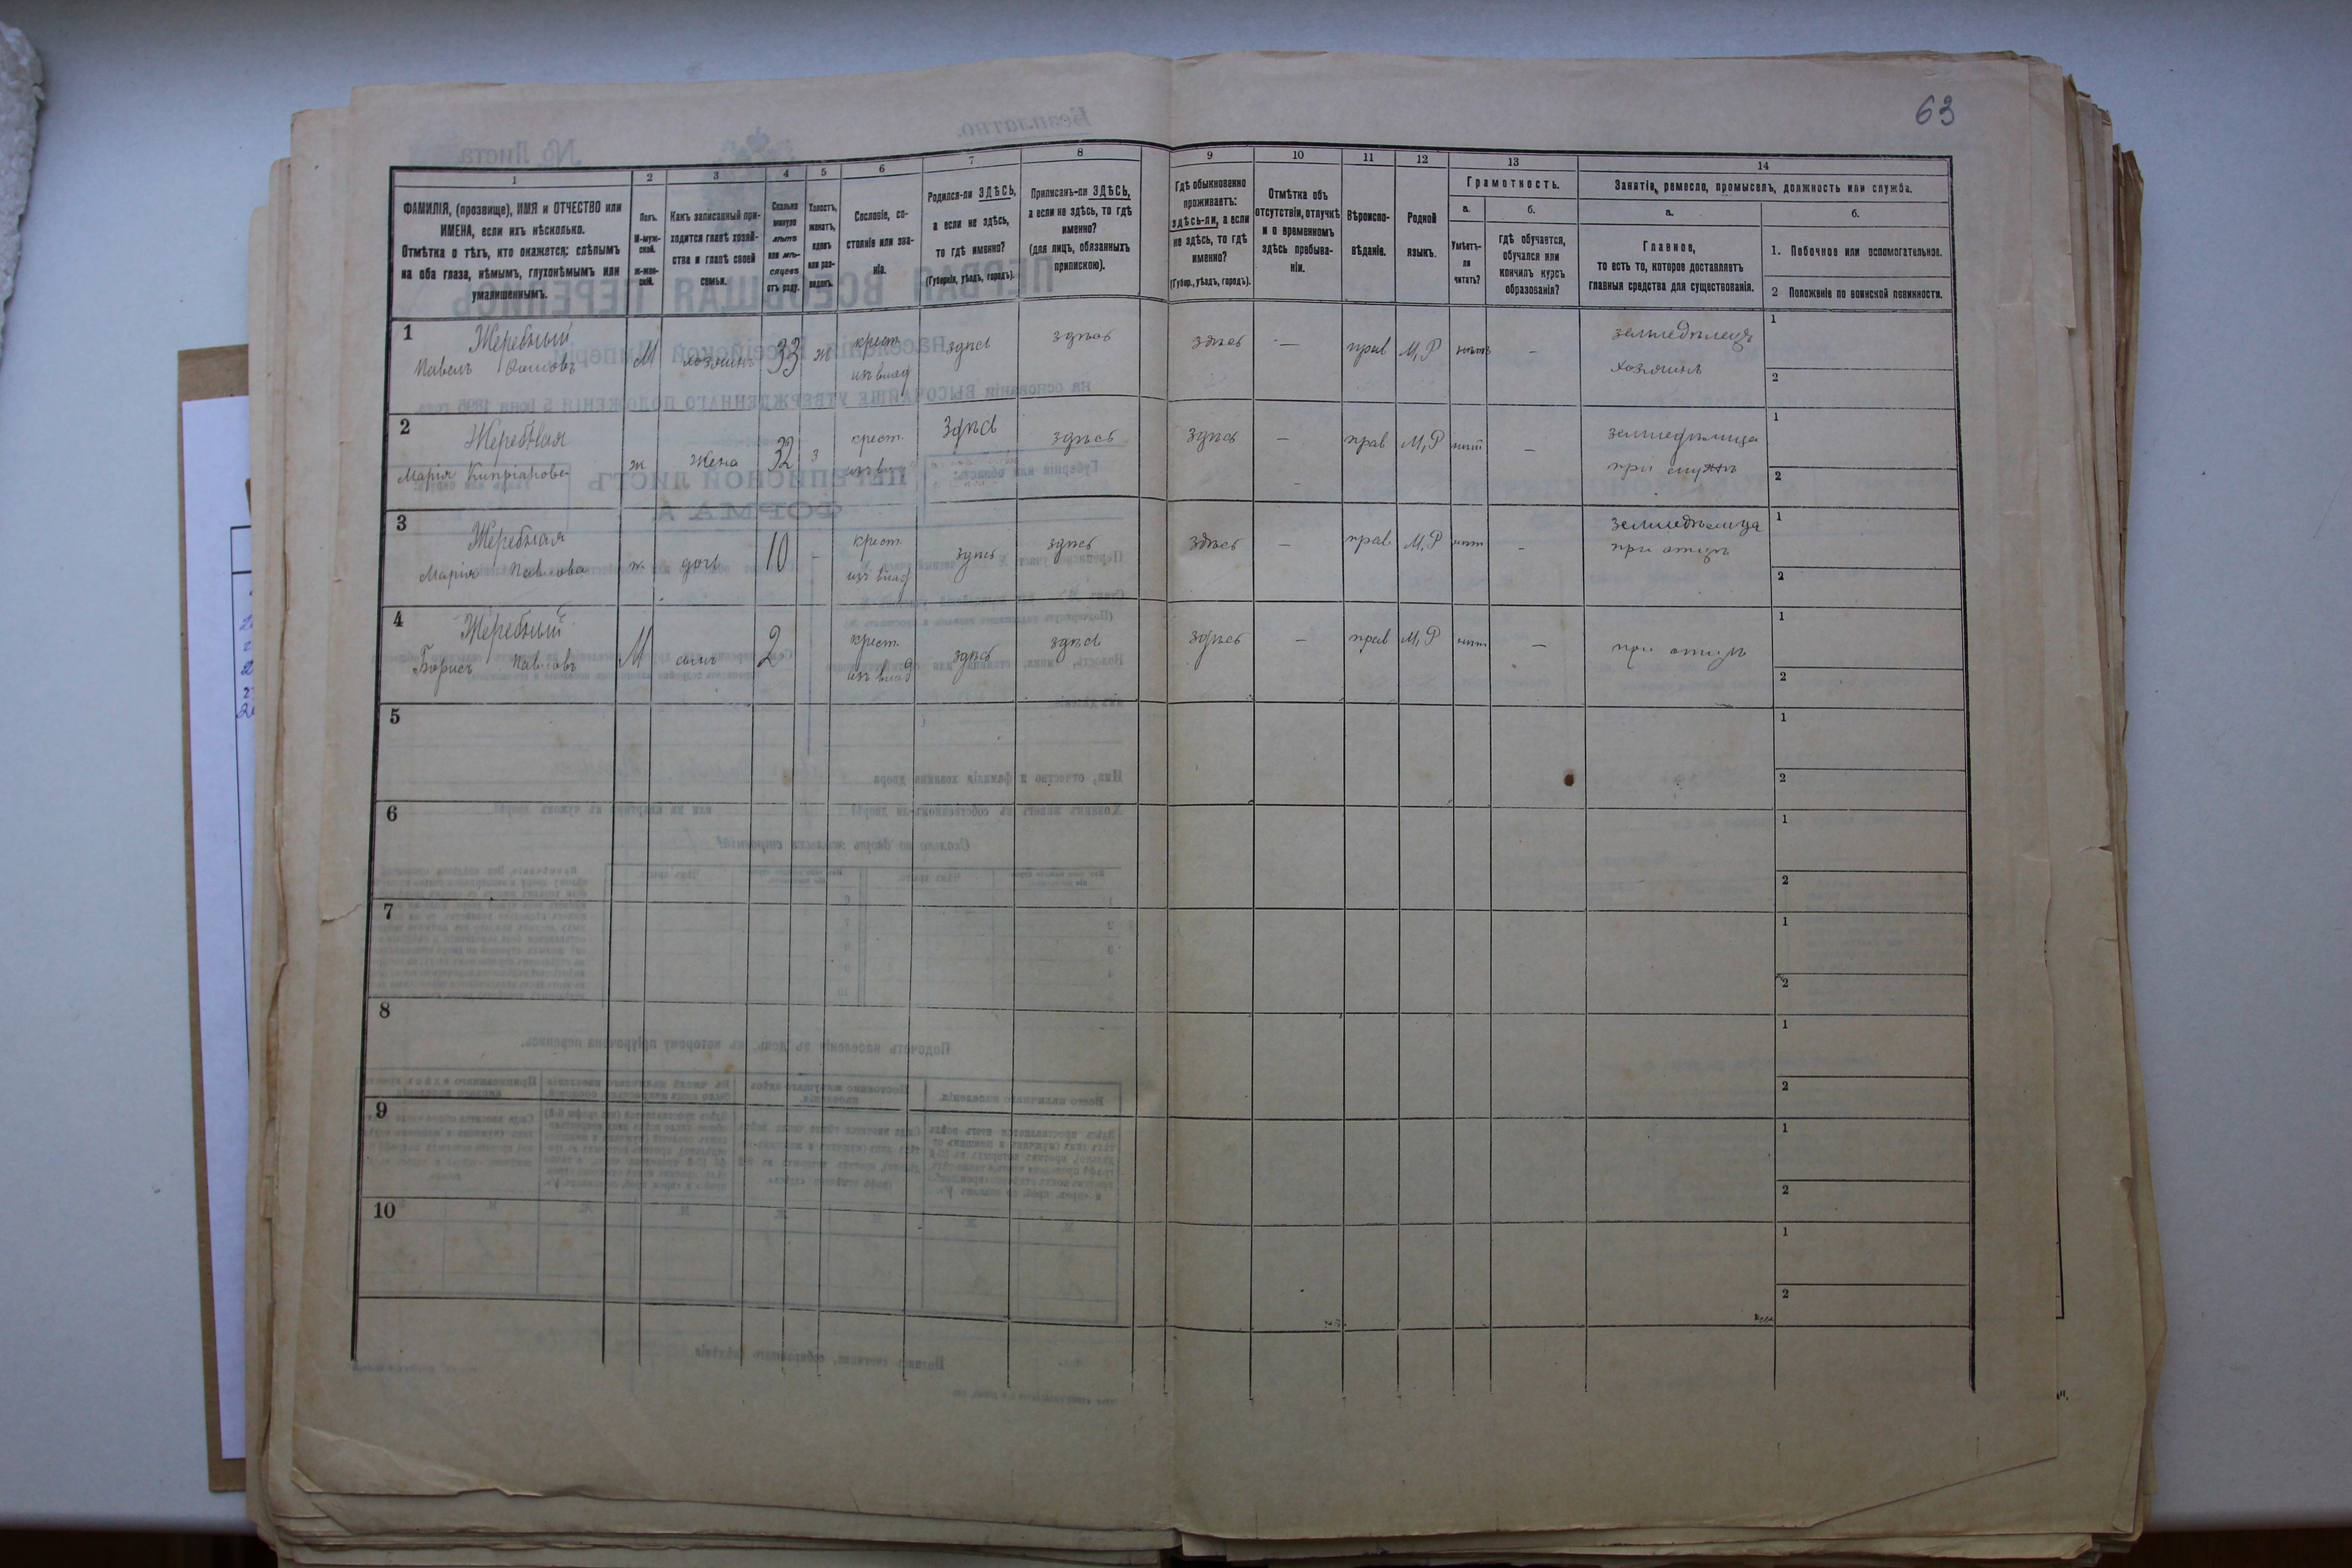 63
1
2
3
4
5
6
7
8
9
10
11
12
13
14
ФАМИЛІЯ, (прозвище), ИМЯ и ОТЧЕСТВО или
ИМЕНА, если ихъ нѣсколько.
Отмѣтка о тѣхъ, кто окажется: слѣпымъ
на оба глаза, нѣмымъ, глухонѣмымъ или
умалишеннымъ.
Полъ.
М-муж-
ской.
Ж-жен-
скій.
Какъ записанный при-
ходится главѣ хозяй-
ства и главѣ своей
семьи.
Сколько
минуло
лѣтъ
или мѣ-
сяцевъ
отъ роду.
Холостъ,
женатъ,
вдовъ
или раз-
веденъ.
Сословіе, со-
стояніе или зва-
ніе.
Родился-ли ЗДѢСЬ,
а если не здѣсь,
то гдѣ именно?
(Губернія, уѣздъ, городъ).
Приписанъ-ли ЗДѢСЬ,
а если не здѣсь, то гдѣ
именно?
(для лицъ, обязанныхъ
припискою).
Гдѣ обыкновенно
проживаетъ:
здѣсь-ли, а если
не здѣсь, то гдѣ
именно?
(Губер., уѣздъ, городъ).
Отмѣтка объ
отсутствіи, отлучкѣ
и о временномъ
здѣсь пребыва-
ніи.
Вѣроиспо-
вѣданіе.
Родной
языкъ.
Грамотность.
а.
Умѣетъ-
ли
читать?
б.
гдѣ обучается,
обучался или
кончилъ курсъ
образованія?
Занятіе, ремесло, промыселъ, должность или служба.
а.
Главное,
то есть то, которое доставляетъ
главныя средства для существованія.
б.
1. Побочное или вспомогательное.
2 Положеніе по воинской повинности.
1
Жеребный
Павелъ
М хозяинъ 33 ж
крест.
изъ влад
здѣсь здѣсь здѣсь — прав М,Р нѣтъ —
земледѣлецъ
хозяинъ
1
2
2
Жеребная
Марія Кипріанова
ж жена 32 з
крест.
изъ влад
здѣсь здѣсь здѣсь — прав М,Р нѣт —
земледѣлица
при мужѣ
1
2
3
Жеребная
Марія Павлова
ж дочь 10 —
крест.
изъ влад
здѣсь здѣсь здѣсь — прав М,Р нѣт —
земледѣлица
при отцѣ
1
2
4
Жеребный
Борисъ Павловъ
М сынъ 2
крест.
изъ влад
здѣсь здѣсь здѣсь — прав М,Р нѣт —
при отцѣ
1
2
5
1
2
6
1
2
7
1
2
8
1
2
9
1
2
10
1
2